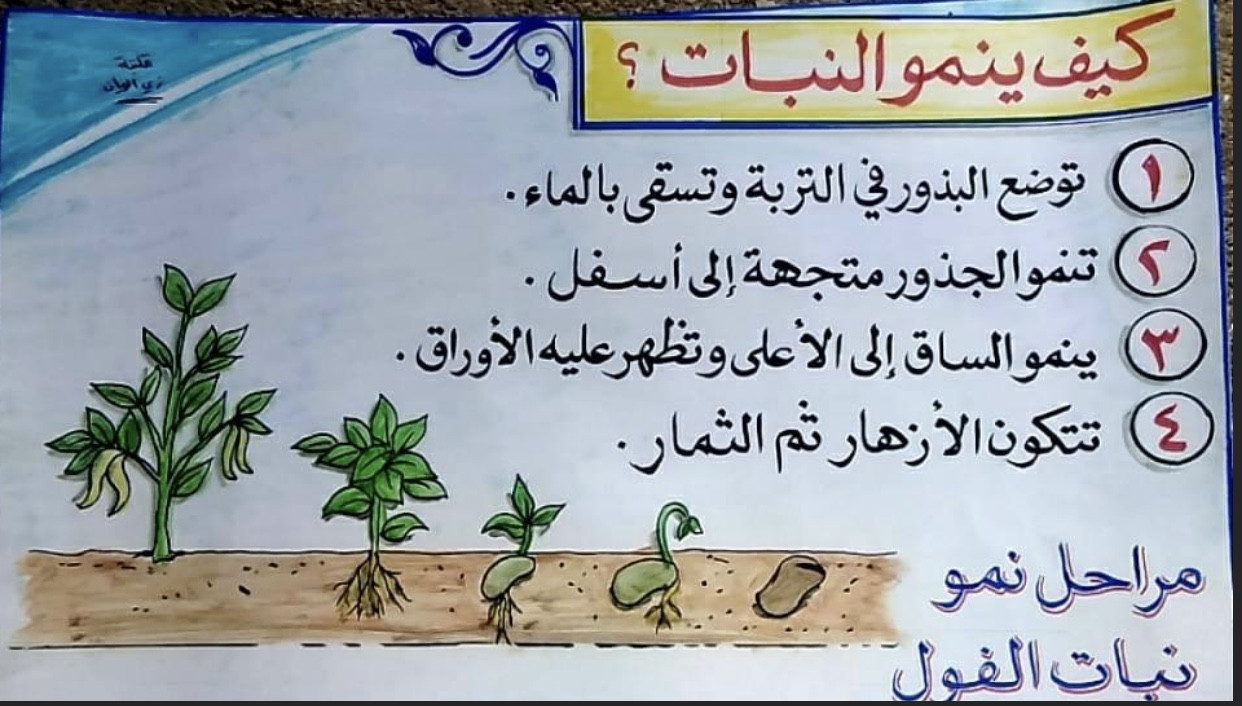 كيف ينمو النبات ؟
١ توضع البذور في التربة وتسقى بالماء .
٢ تنمو الجذور متجهة إلى أسفل .
٣ ينمو الساق إلى الأعلى وتظهر عليه الأوراق .
٤ تتكون الأزهار ثم الثمار .
مراحل نمو
نبات الفول